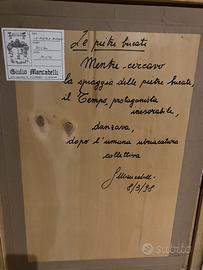 Giulio Mancabelli
Le pietre bucate
Mentre cercavo
la spiaggia delle pietre bucate,
il Tempo, protagonista
inesorabile,
danzava,
dopo l'umana ubriacatura
collettiva
8/3/98
subito